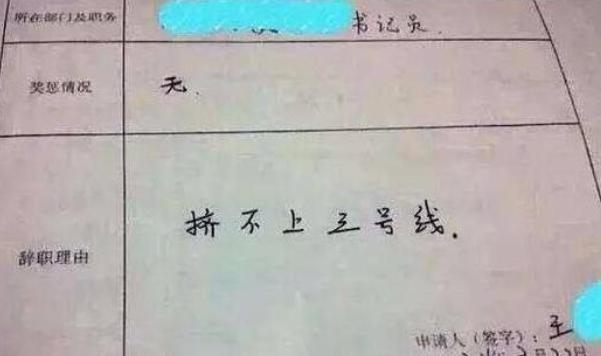 所在部门及职务 书记员.
奖惩情况 无.
辞职理由 挤不上三号线.
申请人（签字）：王